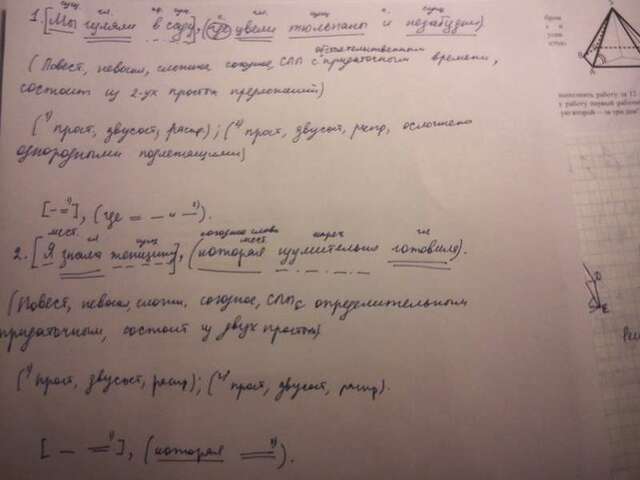 сущ. гл. пр. сущ. с. гл. сущ. с. сущ.
1. [Мы гуляли в саду], (где цвели тюльпаны и незабудки).
обстоятельственным
(Повест, невоскл, сложное, союзное, СПП с придаточным времени,
состоит из 2-ух простых предложений)
(1) прост, двусост, распр); (2) прост, двусост, распр, осложнено
однородными подлежащими)
[- = 1)], (где = — и — 2)).
мест. гл сущ союзное слово мест. нареч гл
2. [Я знала женщину], (которая изумительно готовила).
(Повест, невоскл, сложн, союзное, СПП с определительным
придаточным, состоит из двух простых)
(1) прост, двусост, распр); (2) прост, двусост, распр).
[ — = 1)], (которая = 2)).
выполнить работу за 12
у работу первый рабочи